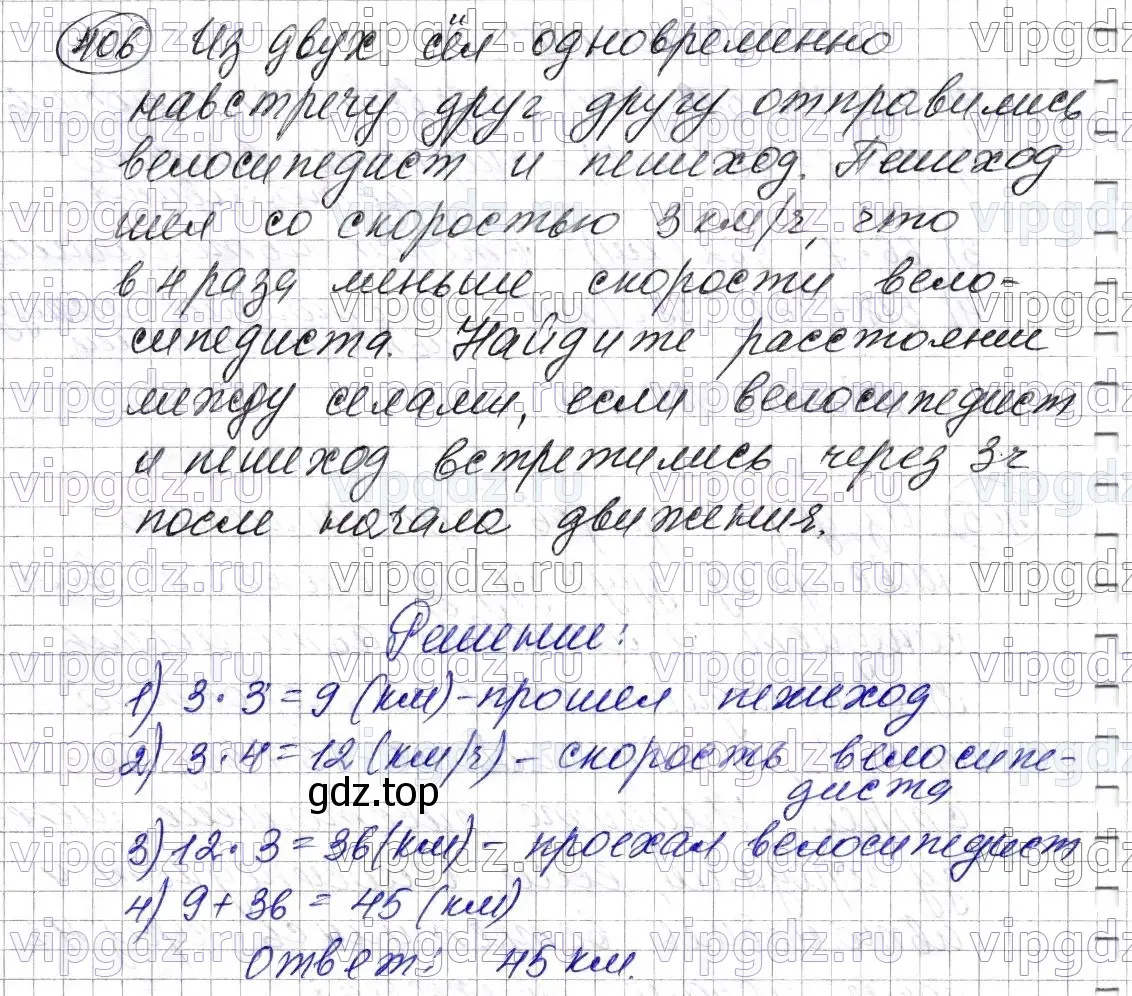 406 Из двух сёл одновременно
навстречу друг другу отправились
велосипедист и пешеход. Пешеход
шел со скоростью 3 км/ч, что
в 4 раза меньше скорости вело-
сипедиста. Найдите расстояние
между селами, если велосипедист
и пешеход встретились через 3 ч
после начала движения.
Решение:
1) 3 · 3 = 9 (км) - прошел пешеход
2) 3 · 4 = 12 (км/ч) - скорость велосипе-
диста
gdz.top
3) 12 · 3 = 36 (км) - проехал велосипедист
4) 9 + 36 = 45 (км)
Ответ: 45 км.
vipgdz.ru